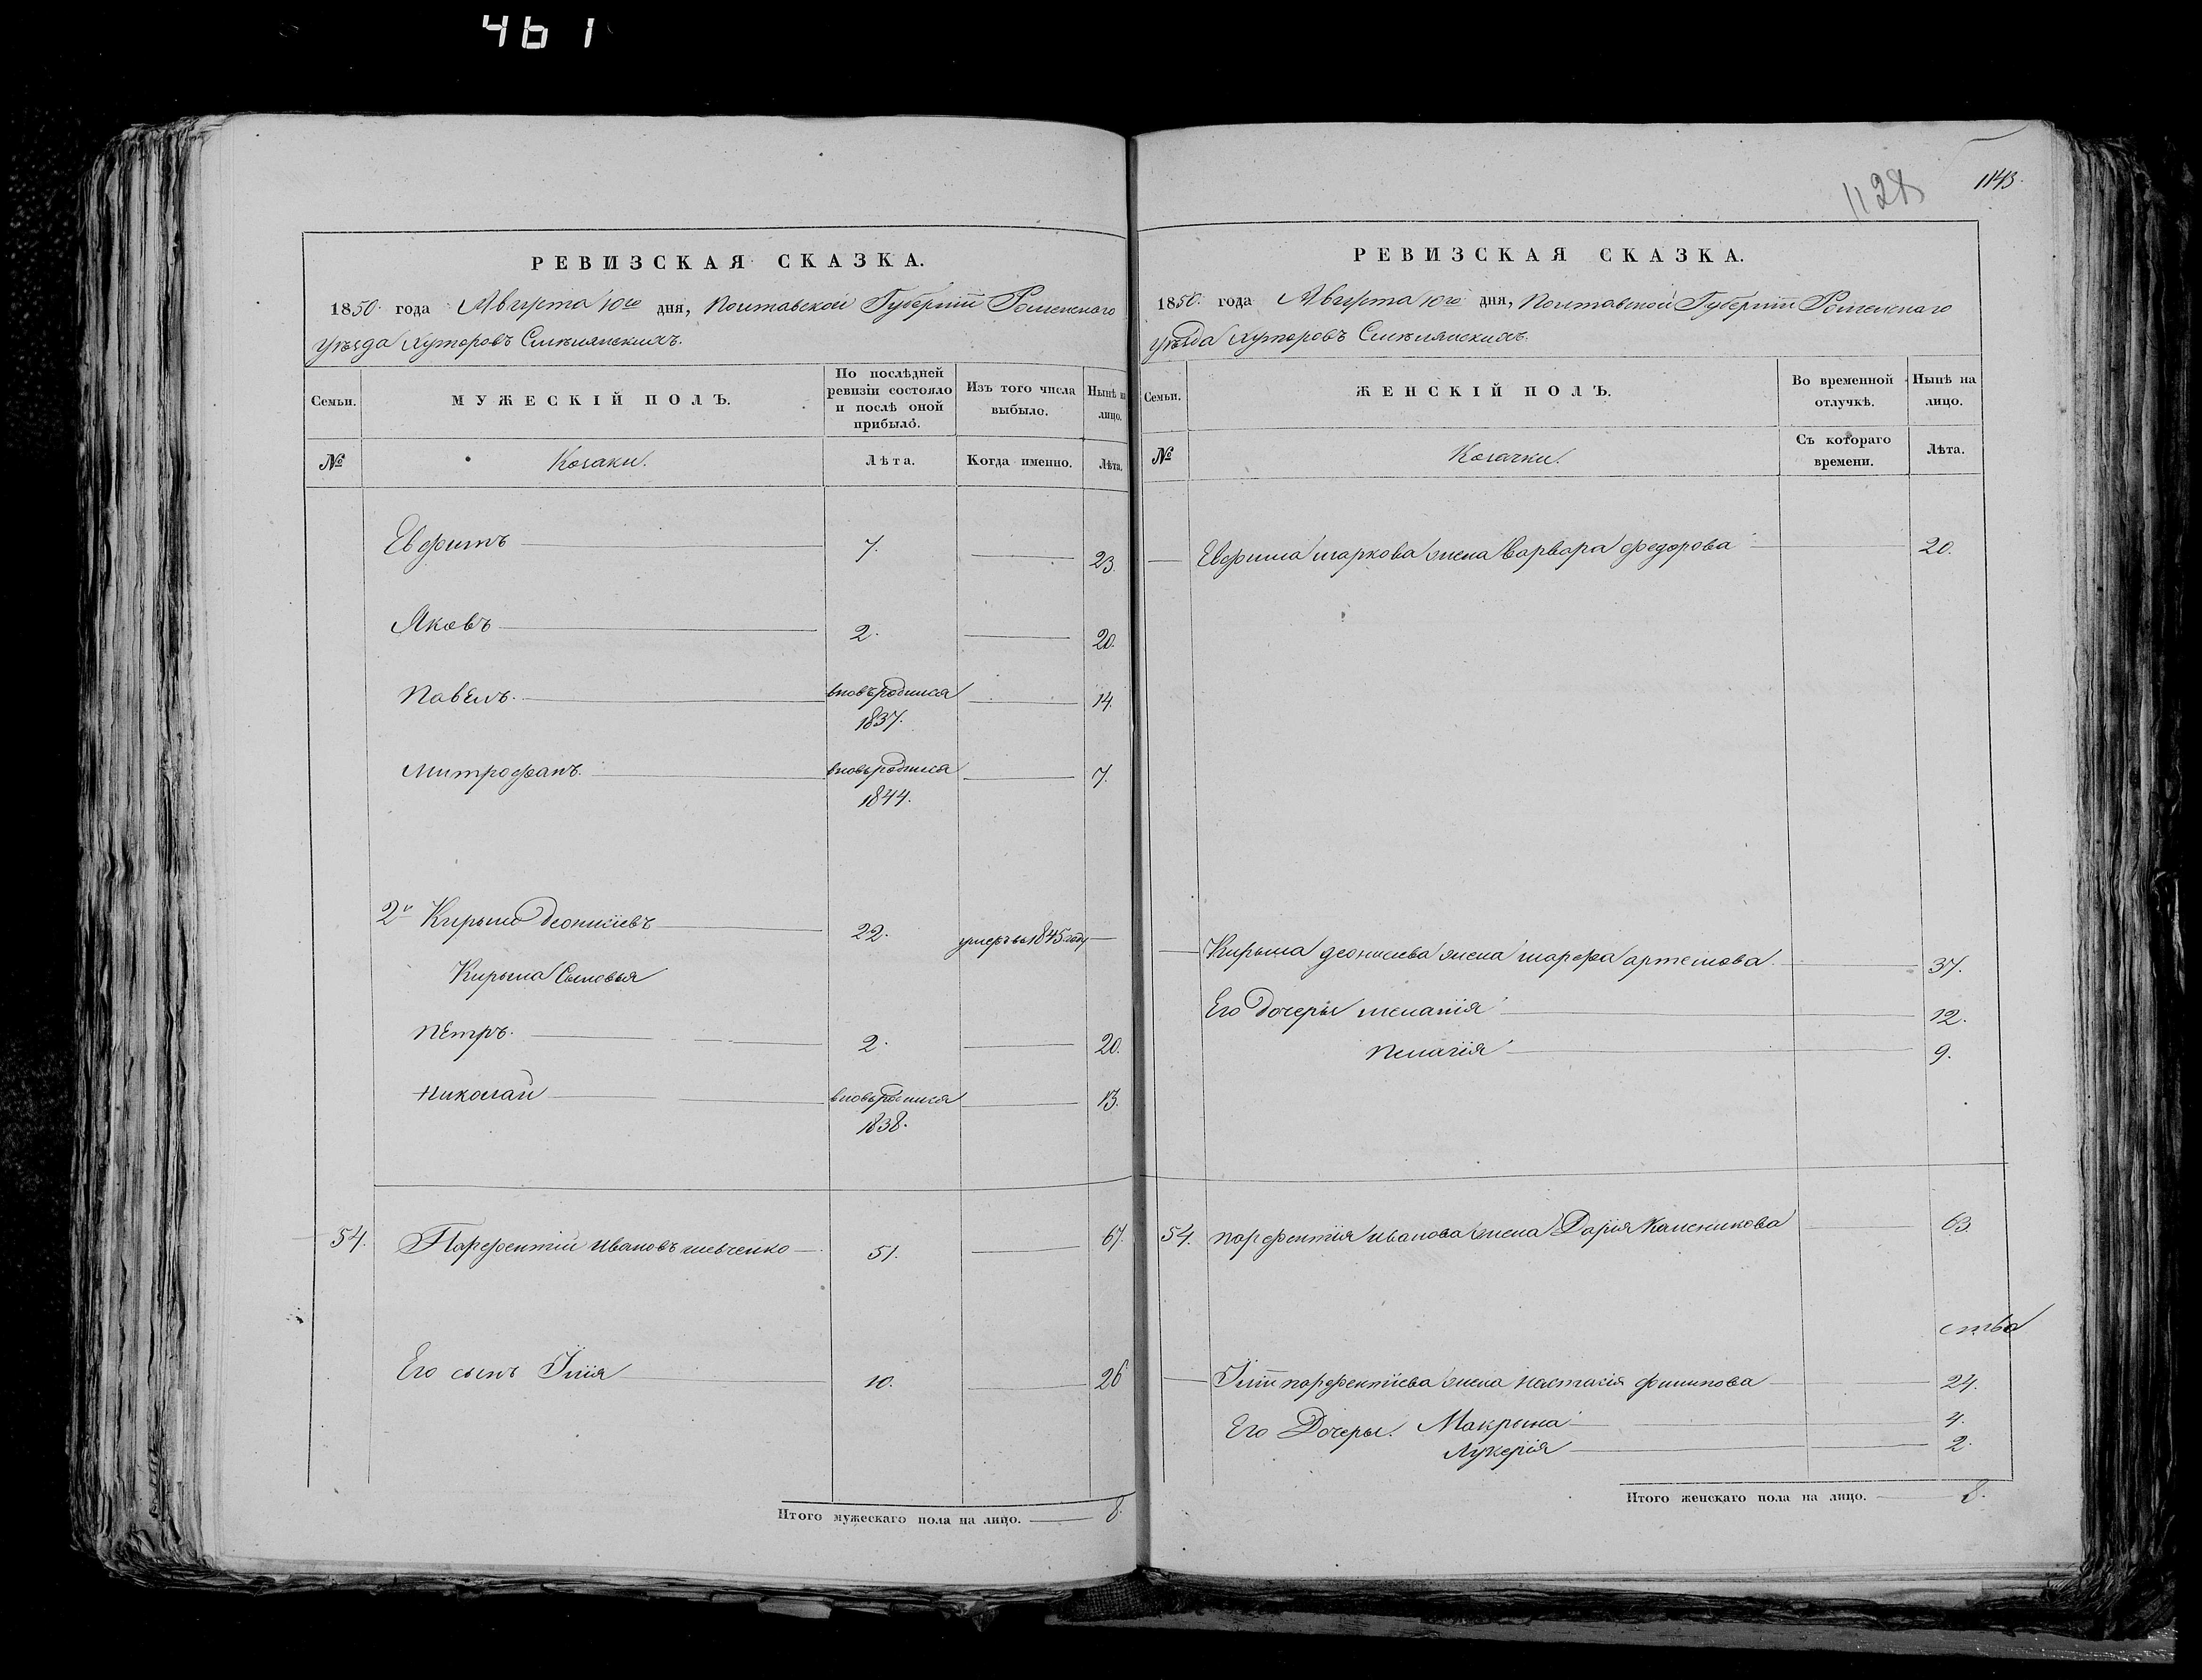 461
РЕВИЗСКАЯ СКАЗКА.
1850 года Августа 10го дня, Полтавской Губерніи Роменскаго
уѣзда Хуторовъ Смѣлянскихъ.
Семьи.
МУЖЕСКІЙ ПОЛЪ.
По послѣдней
ревизіи состояло
и послѣ оной
прибыло.
Изъ того числа
выбыло.
Нынѣ на
лицо.
№
Козаки.
Лѣта.
Когда именно.
Лѣта.
Евфимъ 7. 23.
Яковъ 2. 20.
Павелъ. вновьродился 14.
1837.
Митрофанъ. вновьродился 7.
1844.
2й Кирыло Леонтіевъ 22. умеръ въ 1845 году
Кирыла Сыновья
Петръ. 2. 20.
Николай вновьродился 13.
1838.
54. Парфентій Ивановъ Шевченко 51. 67.
Его сынъ Илія 10. 26
Итого мужескаго пола на лицо. 8.
1128
1143.
РЕВИЗСКАЯ СКАЗКА.
1850 года Августа 10го дня, Полтавской Губерніи Роменскаго
уѣзда Хуторовъ Смѣлянскихъ.
Семьи.
ЖЕНСКІЙ ПОЛЪ.
Во временной
отлучкѣ.
Нынѣ на
лицо.
№
Козачки.
Съ котораго
времени.
Лѣта.
Евфима Маркова жена Варвара Федорова 20.
Кирыла жена Марфа Артемова. 37.
Его Дочеры Меланія 12.
Пелагія 9.
54. Парфентія Иванова жена Дарія Каленикова 63.
ства
Иліи Парфентіева жена Настасія Филипова 24.
Его Дочеры. Макрына 4.
Лукерія 2.
Итого женскаго пола на лицо. 8.